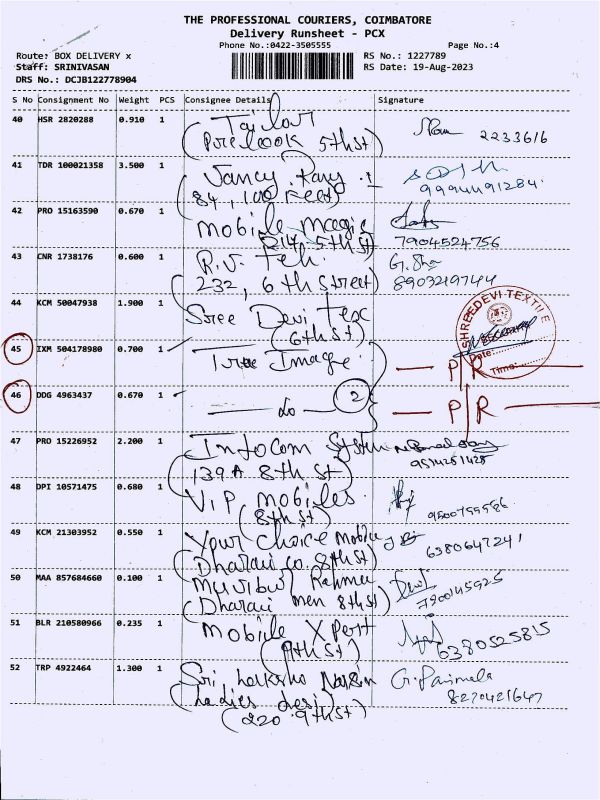 THE PROFESSIONAL COURIERS, COIMBATORE
Delivery Runsheet - PCX
Phone No.:0422-3505555 Page No.:4
Route: BOX DELIVERY x RS No.: 1227789
Staff: SRINIVASAN RS Date: 19-Aug-2023
DRS No.: DCJB122778904
S No Consignment No Weight PCS Consignee Details Signature
40 HSR 2820288 0.910 1 Tailor
(Pure look 5th st) 2233616
41 TDR 100021358 3.500 1 Vancy
(84, 100 Feet) 9994491284
42 PRO 15163590 0.670 1 Mobile Magic
214, 5th st 7904524756
43 CNR 1738176 0.600 1 R.V. Teh.
232, 6th street) 8903219744
44 KCM 50047938 1.900 1 Sree Devi Tex
(6th st) SHREEDEVI TEXTILE
Date:
Time:
45 IXM 504178980 0.700 1 True Image P/R
46 DDG 4963437 0.670 1 — do — 2 P/R
47 PRO 15226952 2.200 1 Infocom System
(139A 8th st) 9514251428
48 DPI 10571475 0.680 1 V.I.P mobiles.
(8th st)
49 KCM 21303952 0.550 1 Your Choice Mobile
(Dharani co. 8th st) 6380647241
50 MAA 857684660 0.100 1 Mujibur Rahman
(Dharani men 8th st) 7900145925
51 BLR 210580966 0.235 1 Mobile Xpert
(9th st) 6380525815
52 TRP 4922464 1.300 1 Sri G. Parimala
(Ladies 8270421647
(220 9th st)